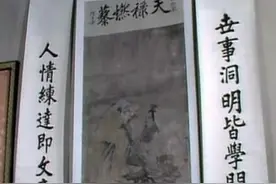 天祿燃藜
世事洞明皆學問
人情練達即文